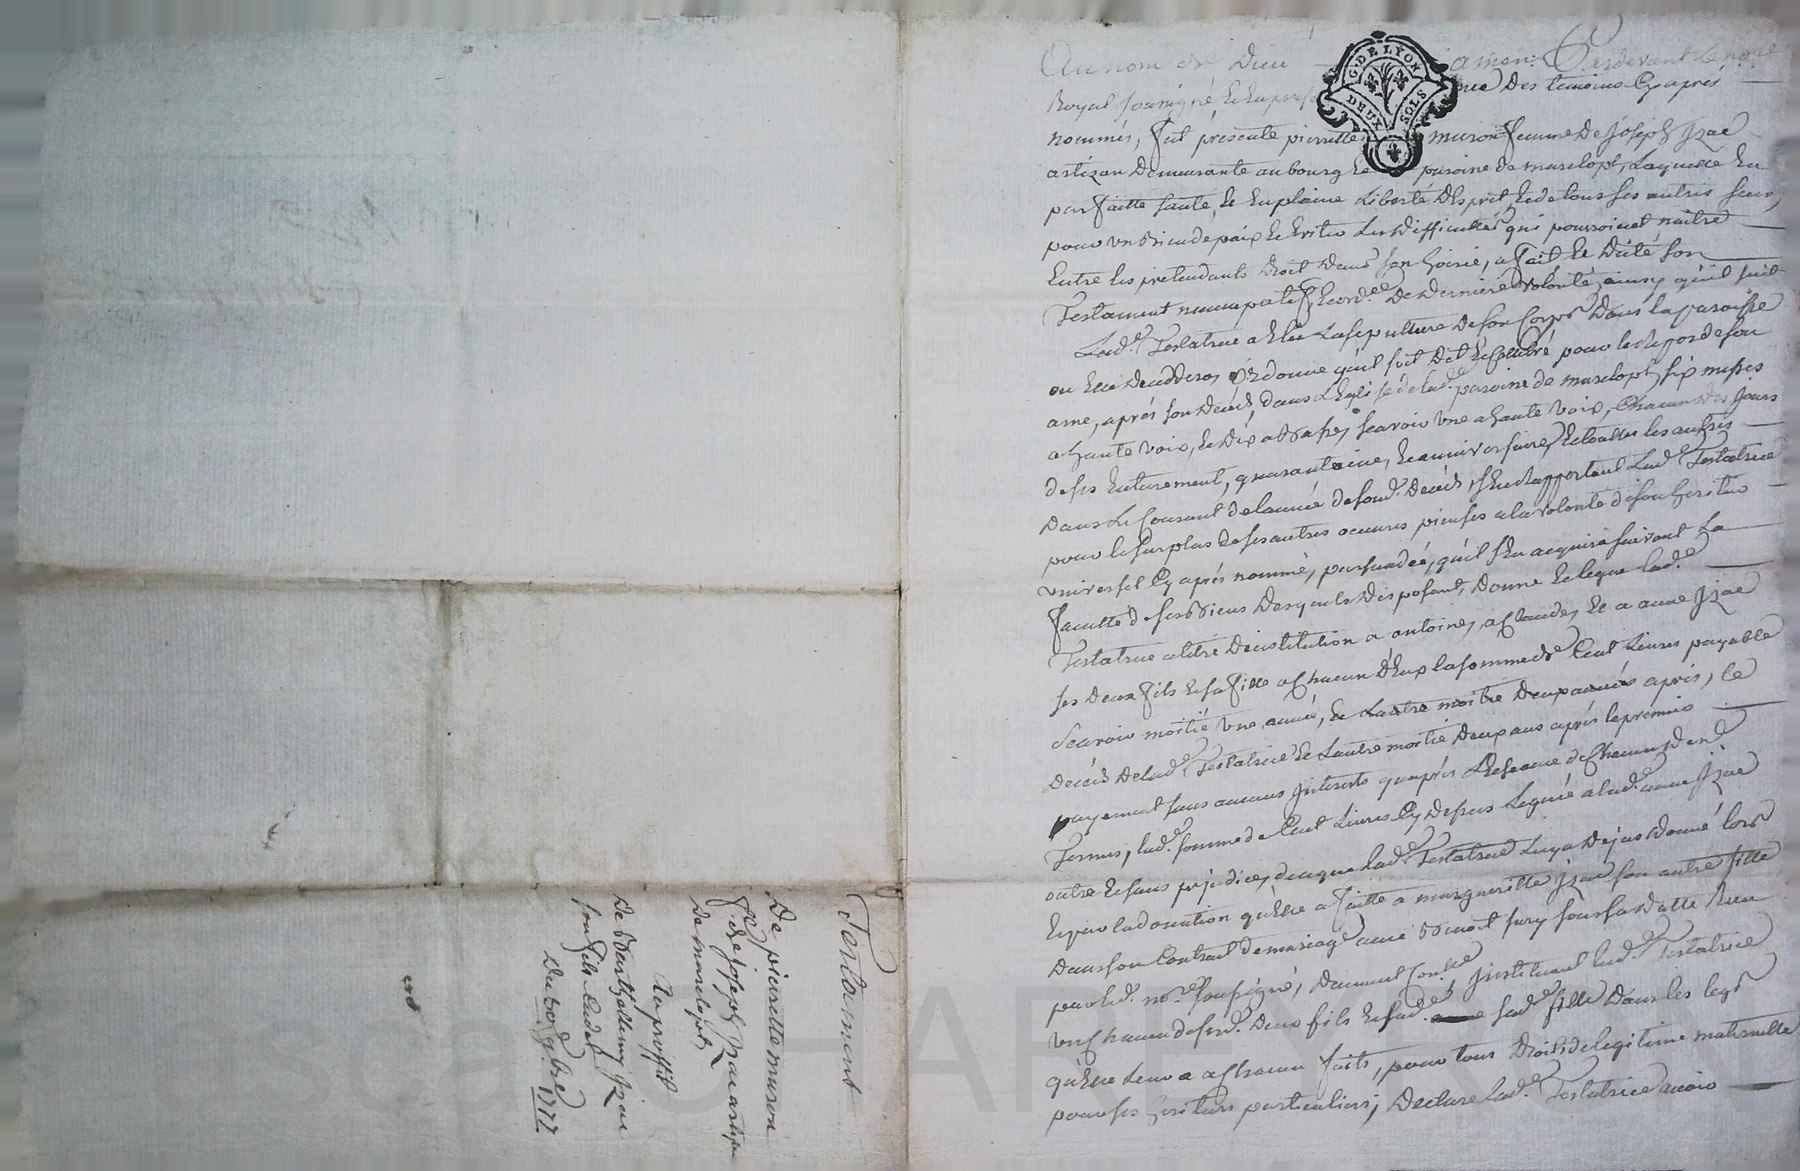 Testament
De pierrette muron
fe. de joseph Izae artizan
De marclopt
au proffit
De Barthellemy Izeae
son fils Cadet
Du 30 9bre 1777
Au nom de Dieu amen. Pardevant le nore
Royal soussigné et en presence des temoins Cy aprés
nommés, fut présente pierrette muron femme De joseph Izae
artizan Demeurante au bourg et paroisse de marclopt, Laquelle En
parfaitte santé, et En plaine Liberté D'Esprit Et de tous ses autres sens,
pour un Bien de paix et Eviter Les difficultés qui pourroient naitre
Entre les pretendants droit dans son hoirie, a fait et Dicté son
Testament nuncupatif et ordce. De Derniere volonté ainsy qu'il suit
Lade. Testatrice a Elu La sepulture De son Corps Dans la paroisse
ou Elle deceddera, Ordonne qu'il soit Dit et Celebré pour le Repos de son
ame, aprés son decéds, dans L'Eglise de lade. paroisse de marclopt, six messes
a haute voix, et dix a Basse, scavoir une a haute voix, Chacun des jours
de ses Enterrement, quarantaine, et anniversaire, et touttes les autres
Dans le Courant de l'année de sond. decéds, s'En Rapportant Lade. Testatrice
pour le surplus de ses autres oeuvres pieuses a la volonté de son heritier
universel Cy aprés nommé, persuadée, qu'il s'En acquira suivant la
faculté de ses Biens Desquels disposant, donne et legue lade.
Testatrice a titre D'institution a antoine, a Claude, et a anne Izae
ses deux fils et sa fille a Chacun d'Eux la somme de Cent Livres payable
scavoir moitié une année, et L'autre moitié deux années aprés, le
decéds de Lade. Testatrice et L'autre moitié deux ans aprés le premier
payement sans aucuns interests qu'aprés L'Echeance de Chacun desd.
Termes, lade. somme de Cent Livres Cy dessus Leguée a lade. anne Izae
outre et sans prejudice, de ce que lade. Testatrice Luy a Dejas Donné lors
Et par la donation qu'Elle a faitte a margueritte Izae son autre fille
Dans son Contrat de mariage avec Benoit sury sous sa datte Reçu
par led. nore. soussigné, Instituant lade. Testatrice
un Chacun de sesd. Deux fils et sad. sade. fille Dans les legs
qu'Elle Leur a a Chacun faits, pour tous Droits de legitime maternelle
pour ses heritiers particuliers; Declare Lade. Testatrice avoir
G. DE LYON
DEUX SOLS